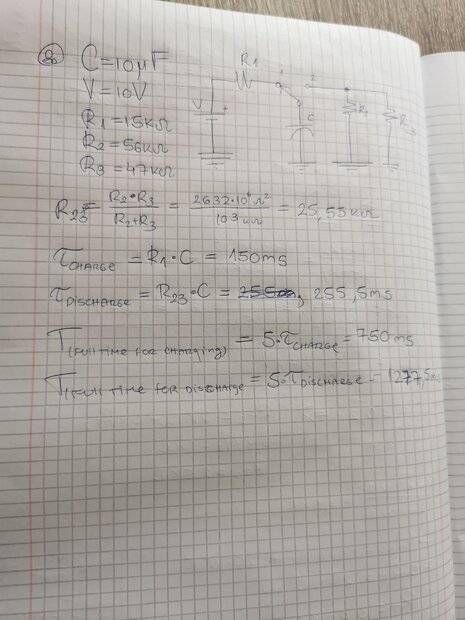 8) C=10μF
V=10V
R1=15kΩ
R2=56kΩ
R3=47kΩ
R1
1
2
V
+
C
R2
R3
R23 = R2·R3 / R2+R3 = 2632·10⁶Ω² / 103 kΩ = 25,55kΩ
τCHARGE = R1·C = 150ms
τDISCHARGE = R23·C = 255,5ms
T(FULL TIME FOR CHARGING) = 5·τCHARGE = 750ms
T(FULL TIME FOR DISCHARGE = 5·τDISCHARGE = 1277,5ms